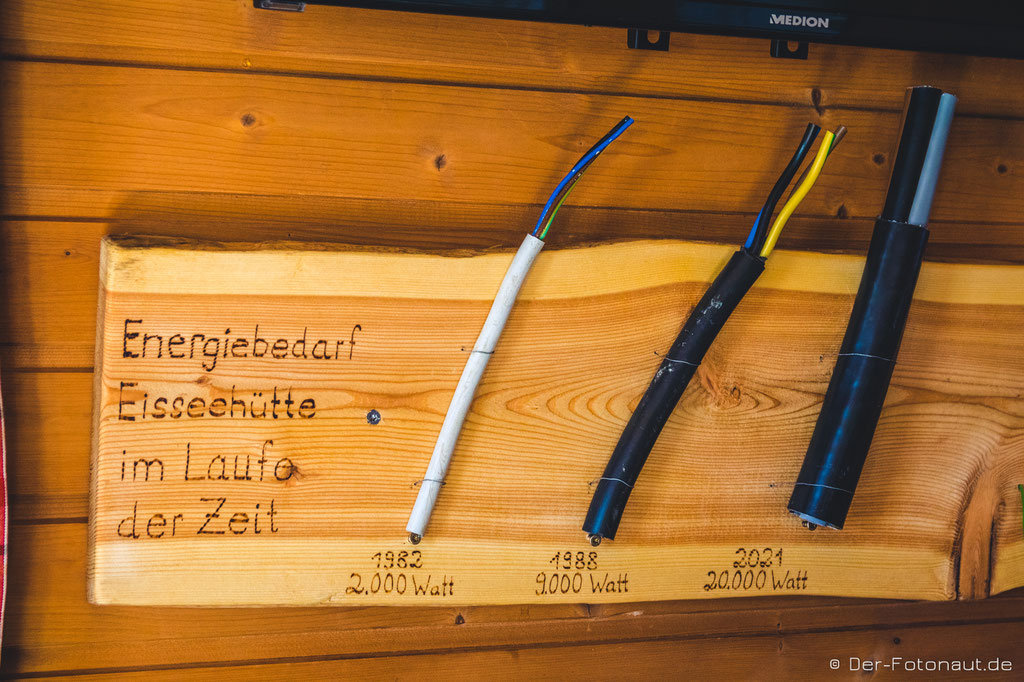 MEDION
Energiebedarf
Eisseehütte
im Laufe
der Zeit
1982
2.000 Watt
1988
9.000 Watt
2021
20.000 Watt
© Der-Fotonaut.de